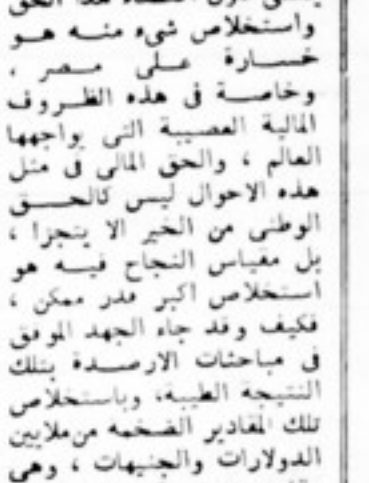 هذا الحق
واستخلاص شيء منه هو
خسارة على مصر ،
وخاصة فى هذه الظروف
المالية العصيبة التى يواجهها
العالم ، والحق المالى فى مثل
هذه الاحوال ليس كالحق
الوطنى من الخير الا يتجزا ،
بل مقياس النجاح فيه هو
استخلاص اكبر قدر ممكن ،
فكيف وقد جاء الجهد الموفق
فى مباحثات الارصدة بتلك
النتيجة الطيبة، وباستخلاص
تلك المقادير الضخمه من ملايين
الدولارات والجنيهات ، وهى